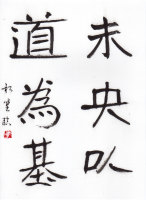 未央以
道為基